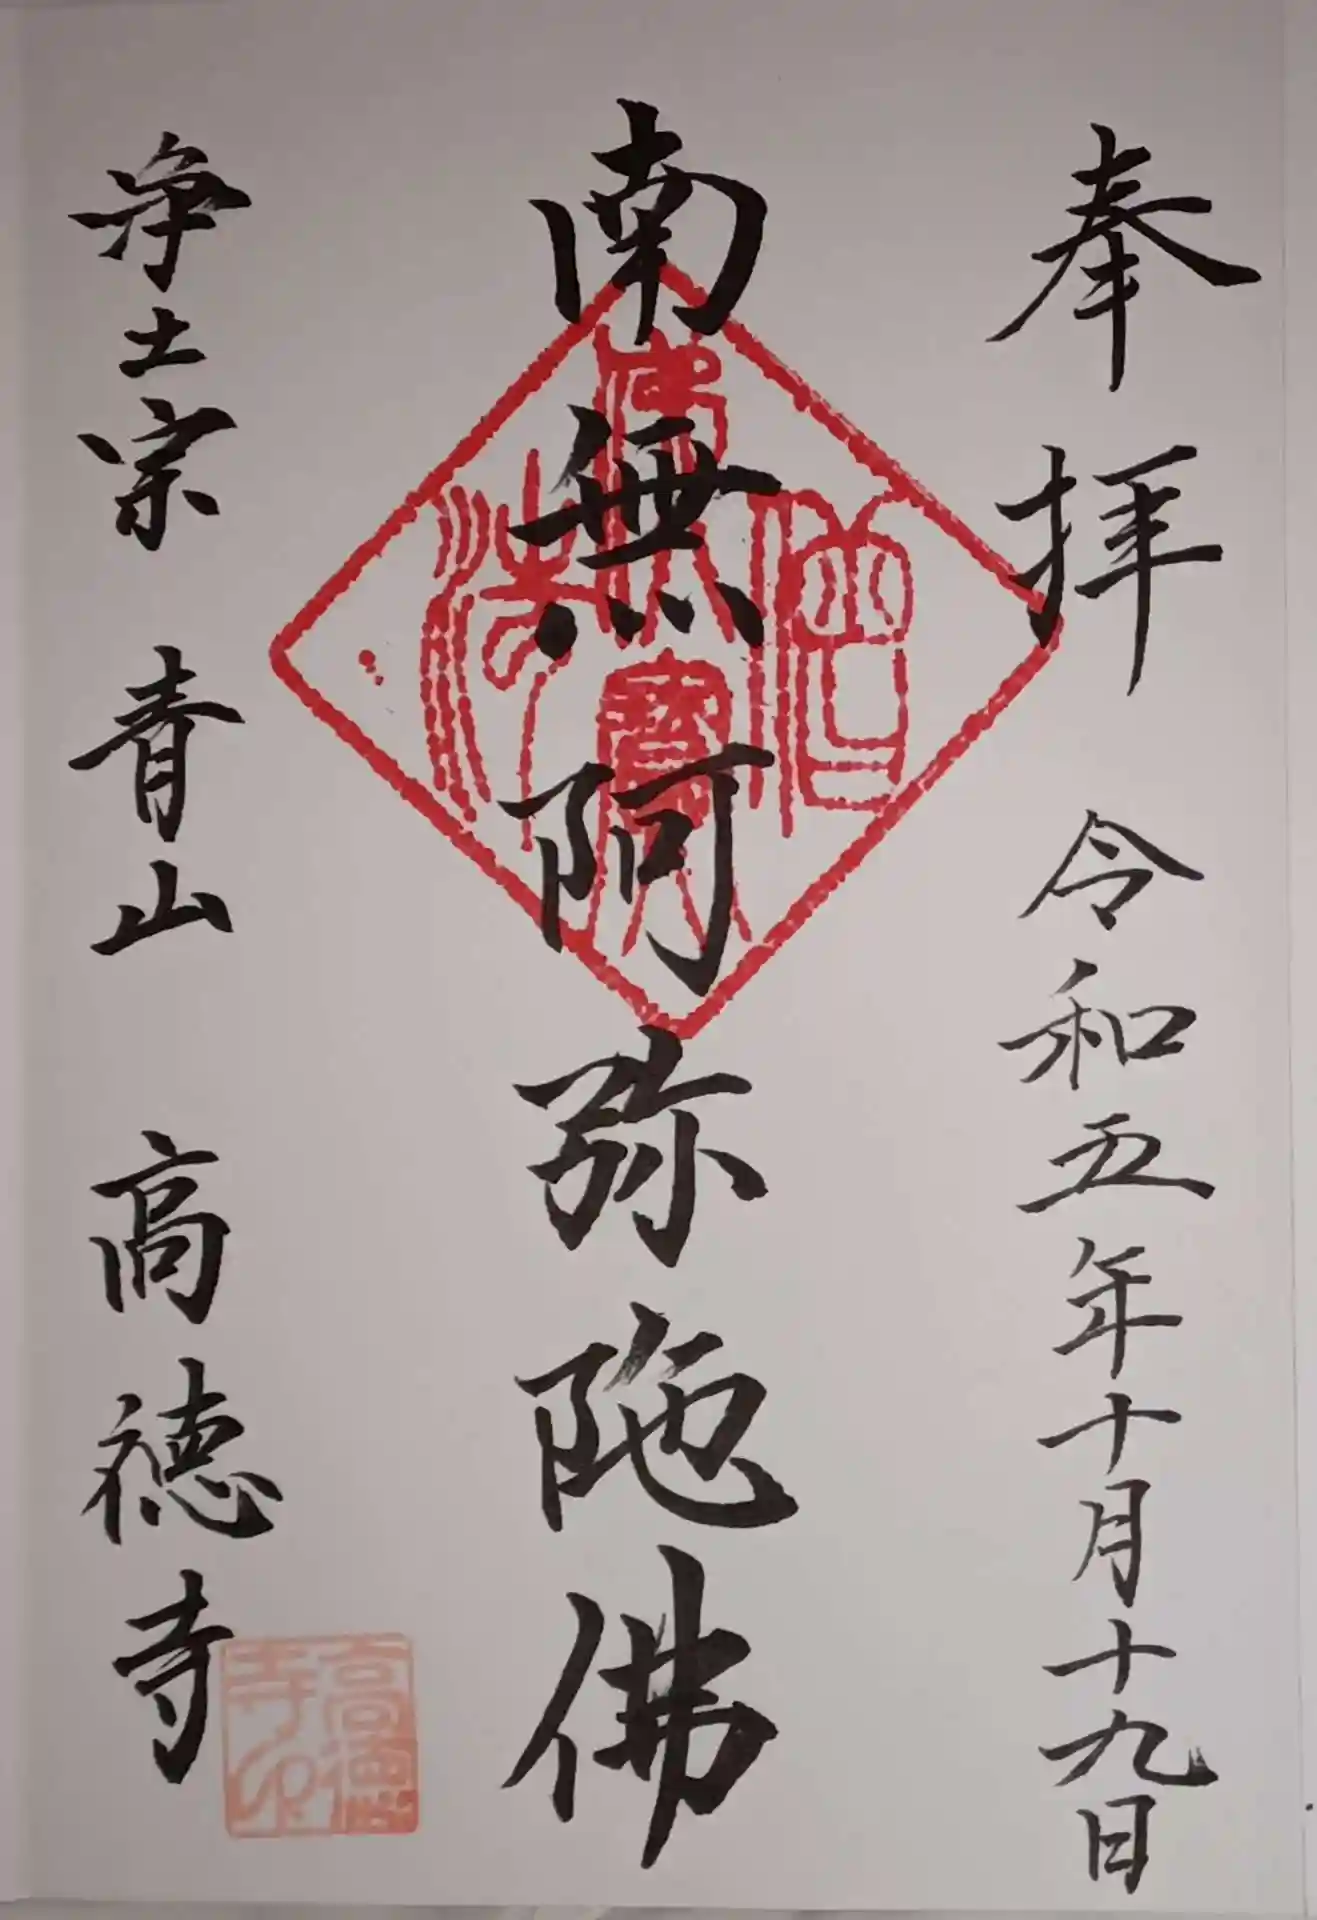 奉拝 令和五年十月十九日
南無阿弥陀佛
佛法僧寶
浄土宗 青山 高徳寺
高徳寺印